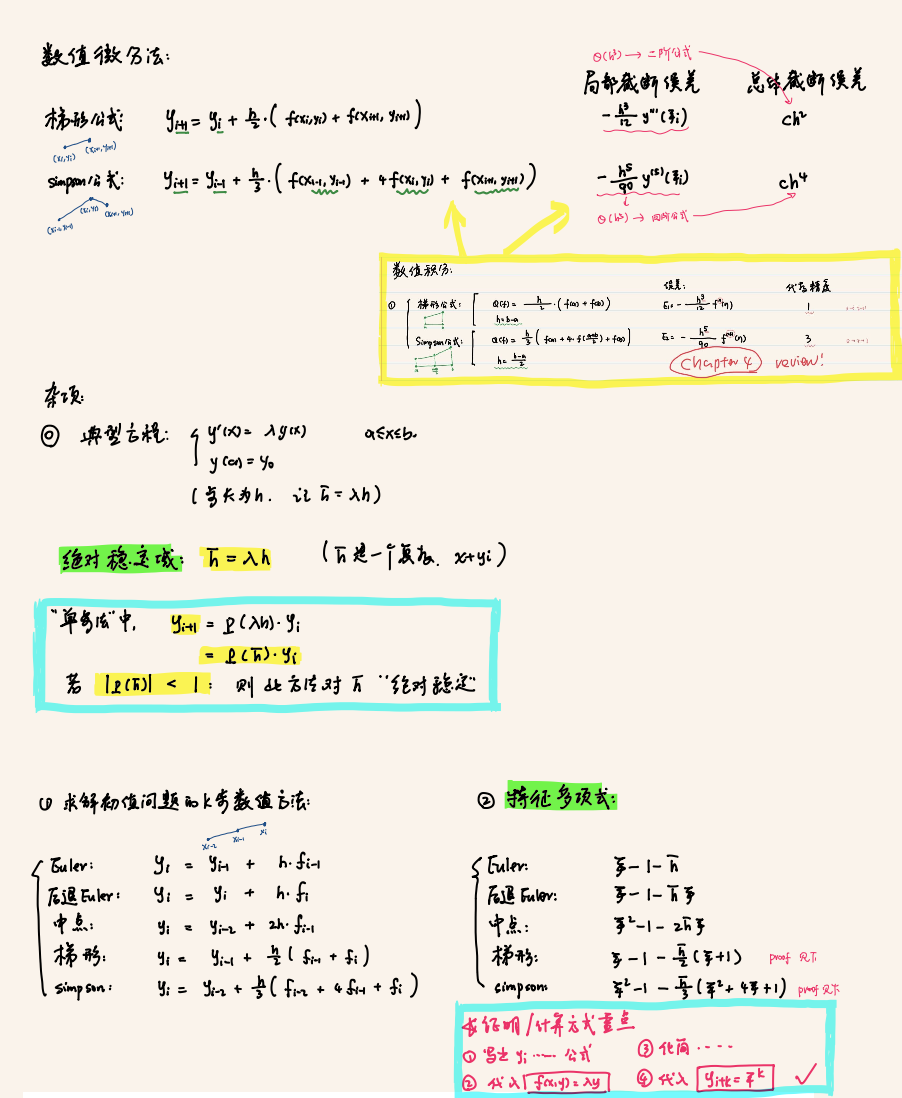 数值微分法:
O(h³) → 二阶公式
局部截断误差 总体截断误差
梯形公式: y_{i+1} = y_i + h/2 · ( f(x_i,y_i) + f(x_{i+1}, y_{i+1}) ) -h³/12 y'''(ξ_i) ch²
(x_i,y_i) (x_{i+1}, y_{i+1})
simpson公式: y_{i+1} = y_{i-1} + h/3 · ( f(x_{i-1}, y_{i-1}) + 4f(x_i,y_i) + f(x_{i+1}, y_{i+1}) ) -h⁵/90 y^{(5)}(ξ_i) ch⁴
(x_{i-1}, y_{i-1}) (x_i, y_i) (x_{i+1}, y_{i+1})
O(h⁵) → 四阶公式
数值积分:
误差: 代数精度
① 梯形公式: Q(f) = h/2 · ( f(a) + f(b) ) E_1 = -h³/12 f''(η) 1
h = b-a
Simpson公式: Q(f) = h/3 ( f(a) + 4·f((a+b)/2) + f(b) ) E_2 = -h⁵/90 f^{(4)}(η) 3
h = (b-a)/2
Chapter 4 review!
杂项:
◎ 典型方程: { y'(x) = λy(x) a≤x≤b.
y(a) = y_0
(步长为h. 记 h̄ = λh)
绝对稳定域: h̄ = λh (h̄ 是一个复数. x+yi)
"单步法"中, y_{i+1} = ρ(λh)·y_i
= ρ(h̄)·y_i
若 |ρ(h̄)| < 1: 则此方法对 h̄ "绝对稳定"
① 求解初值问题的k步数值方法:
x_{i-2} x_{i-1} x_i
Euler: y_i = y_{i-1} + h·f_{i-1}
后退Euler: y_i = y_i + h·f_i
中点: y_i = y_{i-2} + 2h·f_{i-1}
梯形: y_i = y_{i-1} + h/2 ( f_{i-1} + f_i )
simpson: y_i = y_{i-2} + h/3 ( f_{i-2} + 4f_{i-1} + f_i )
② 特征多项式:
Euler: ξ - 1 - h̄
后退Euler: ξ - 1 - h̄ξ
中点: ξ² - 1 - 2h̄ξ
梯形: ξ - 1 - h̄/2 (ξ+1) proof 见下
simpson: ξ² - 1 - h̄/3 (ξ² + 4ξ + 1) proof 见下
证明/计算方式重点
① 写出 y_i ······ 公式 ③ 化简 ····
② 代入 f(x,y) = λy ④ 代入 y_{i+k} = ξ^k ✓